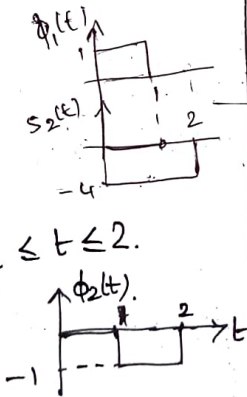 ϕ₁(t)
1
1
s₂(t)
1
2
-4
≤ t ≤ 2.
ϕ₂(t).
2
t
-1